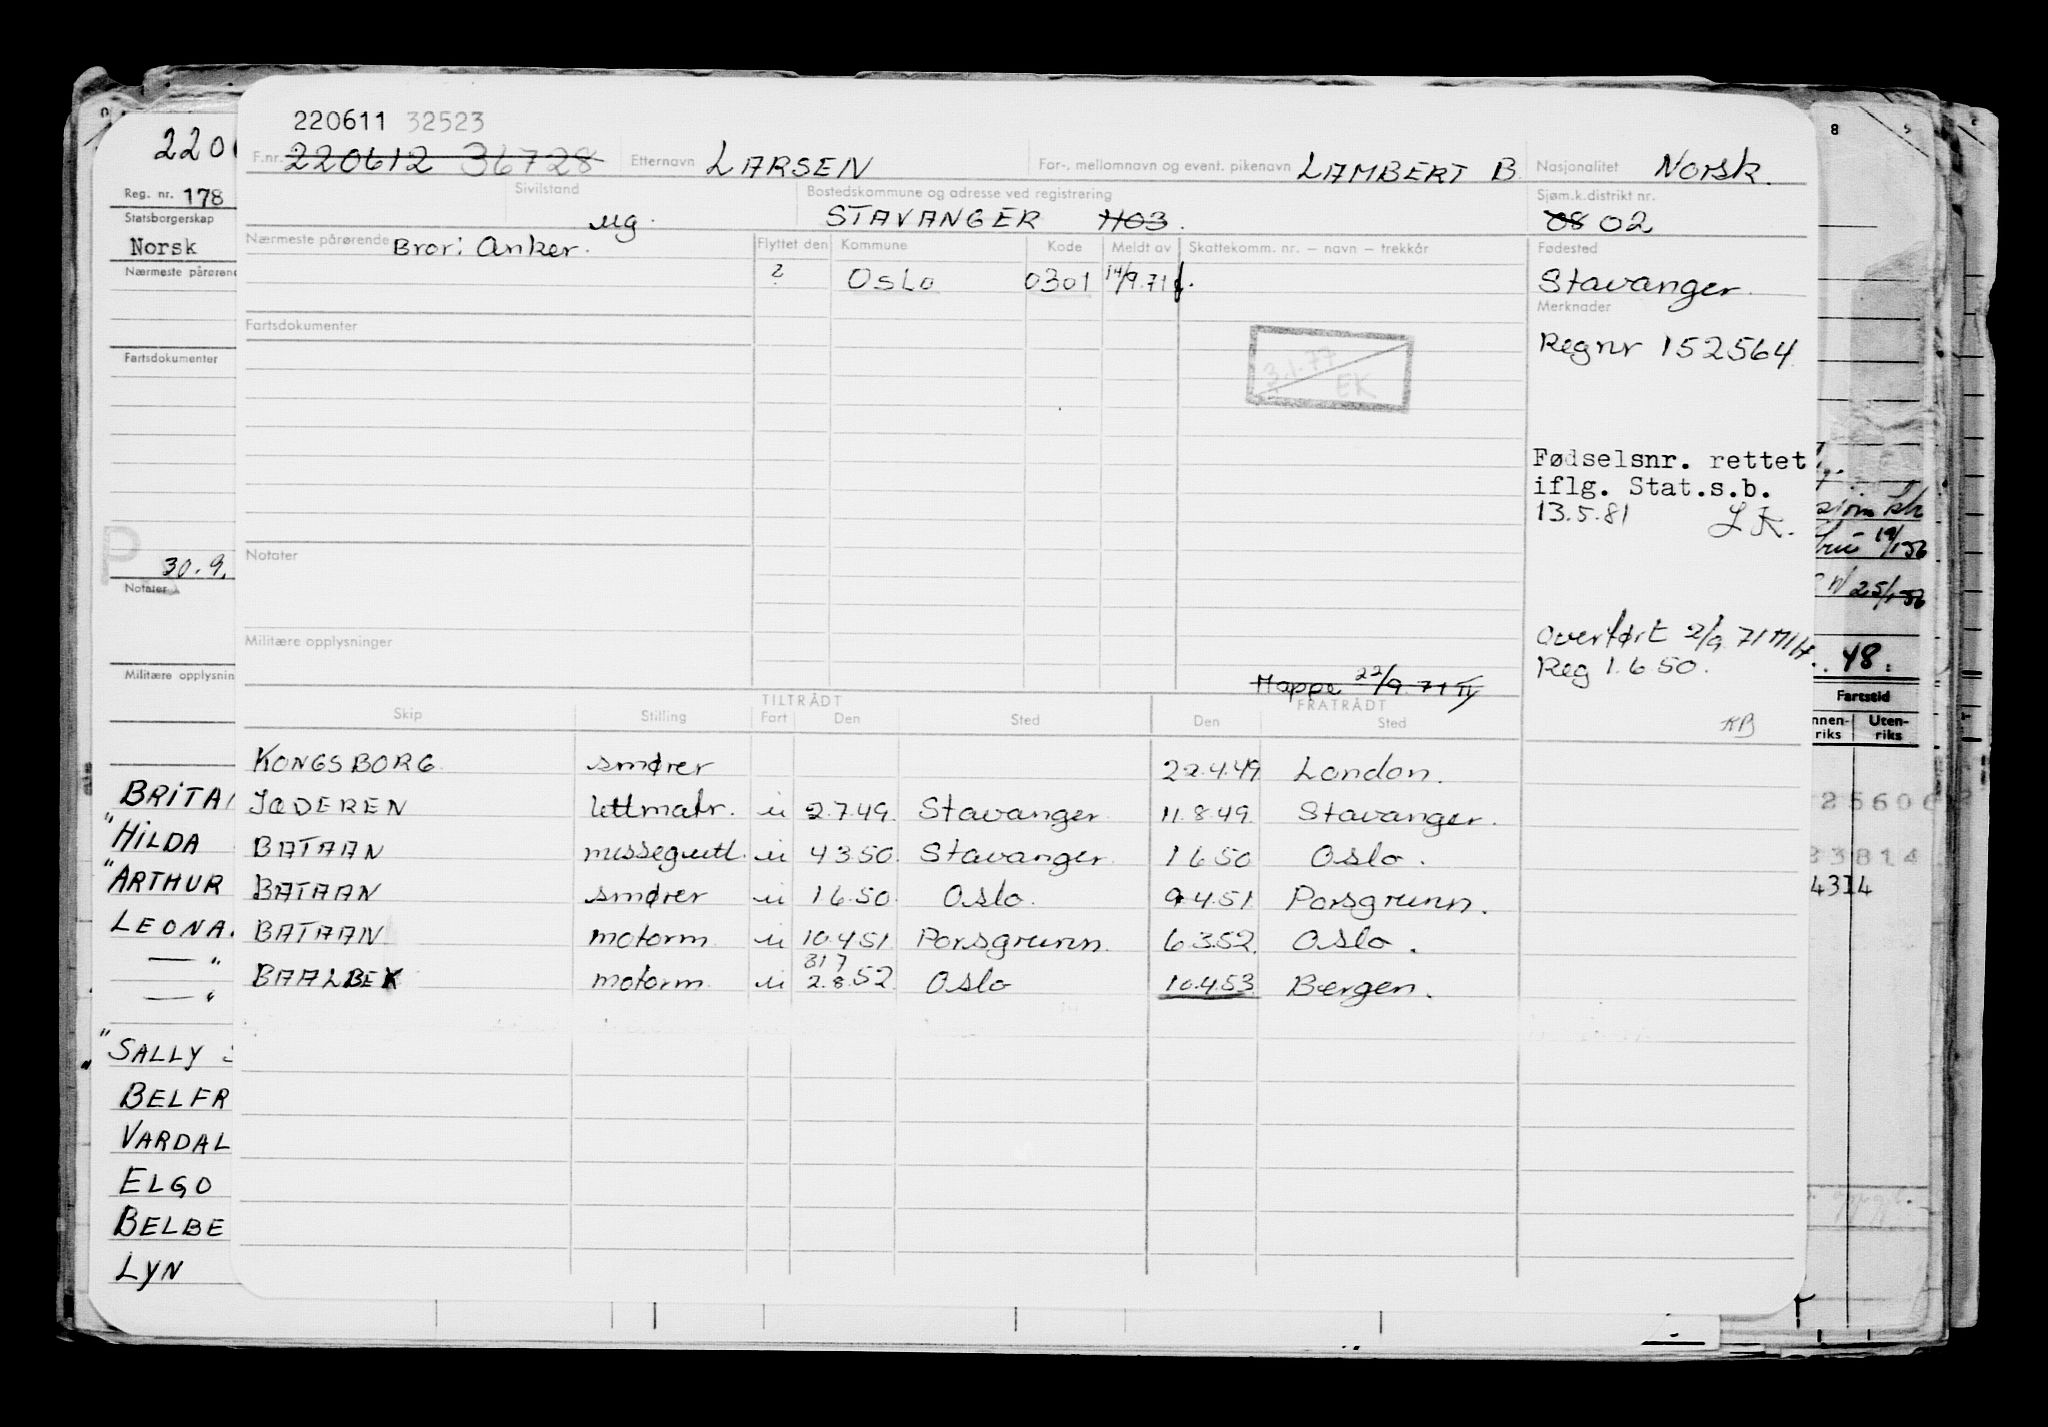 220611 32523
F.nr. 220612 36728 Etternavn LARSEN For-, mellomnavn og event. pikenavn LAMBERT B. Nasjonalitet Norsk.
Sivilstand ug. Bostedskommune og adresse ved registrering STAVANGER 1103. Sjøm.k.distrikt nr. 08 02
Nærmeste pårørende Bror: Anker. Flyttet den Kommune Kode Meldt av Skattekomm. nr. – navn – trekkår Fødested
? Oslo 0301 14/9.71 Stavanger.
Merknader
Fartsdokumenter
Regnr 152564
3.1.77
EK
Fødselsnr. rettet
iflg. Stat.s.b.
13.5.81 LK.
Notater
Militære opplysninger
Overført 2/9 71 MH.
Reg 1.6.50.
Mappe 22/9.71
TILTRÅDT FRATRÅDT
Skip Stilling Fart Den Sted Den Sted
KB
KONGSBORG smører 22.4.49 London.
JÆDEREN lettmatr. u 2.7.49. Stavanger 11.8.49. Stavanger.
BATAAN messegutt. u 4.3.50. Stavanger 1.6.50 Oslo.
BATAAN smører u 1.6.50. Oslo. 9.4.51. Porsgrunn.
BATAAN motorm. u 10.4.51 Porsgrunn. 6.3.52. Oslo.
31 7
BAALBEK motorm. u 2.8.52. Oslo 10.4.53 Bergen.
Reg. nr. 178
Statsborgerskap
Norsk
Nærmeste pårørend
Fartsdokumenter
P
30.9.
Notater
Militære opplysnin
BRITA
"HILDA
"ARTHUR
LEONA.
— "
— "
"SALLY
BELFR
VARDAL
ELGO
BELBE
LYN
8
19/1 56
25/1 56
48.
Fartstid
nnen-
riks
Uten-
riks
25606
83814
4314